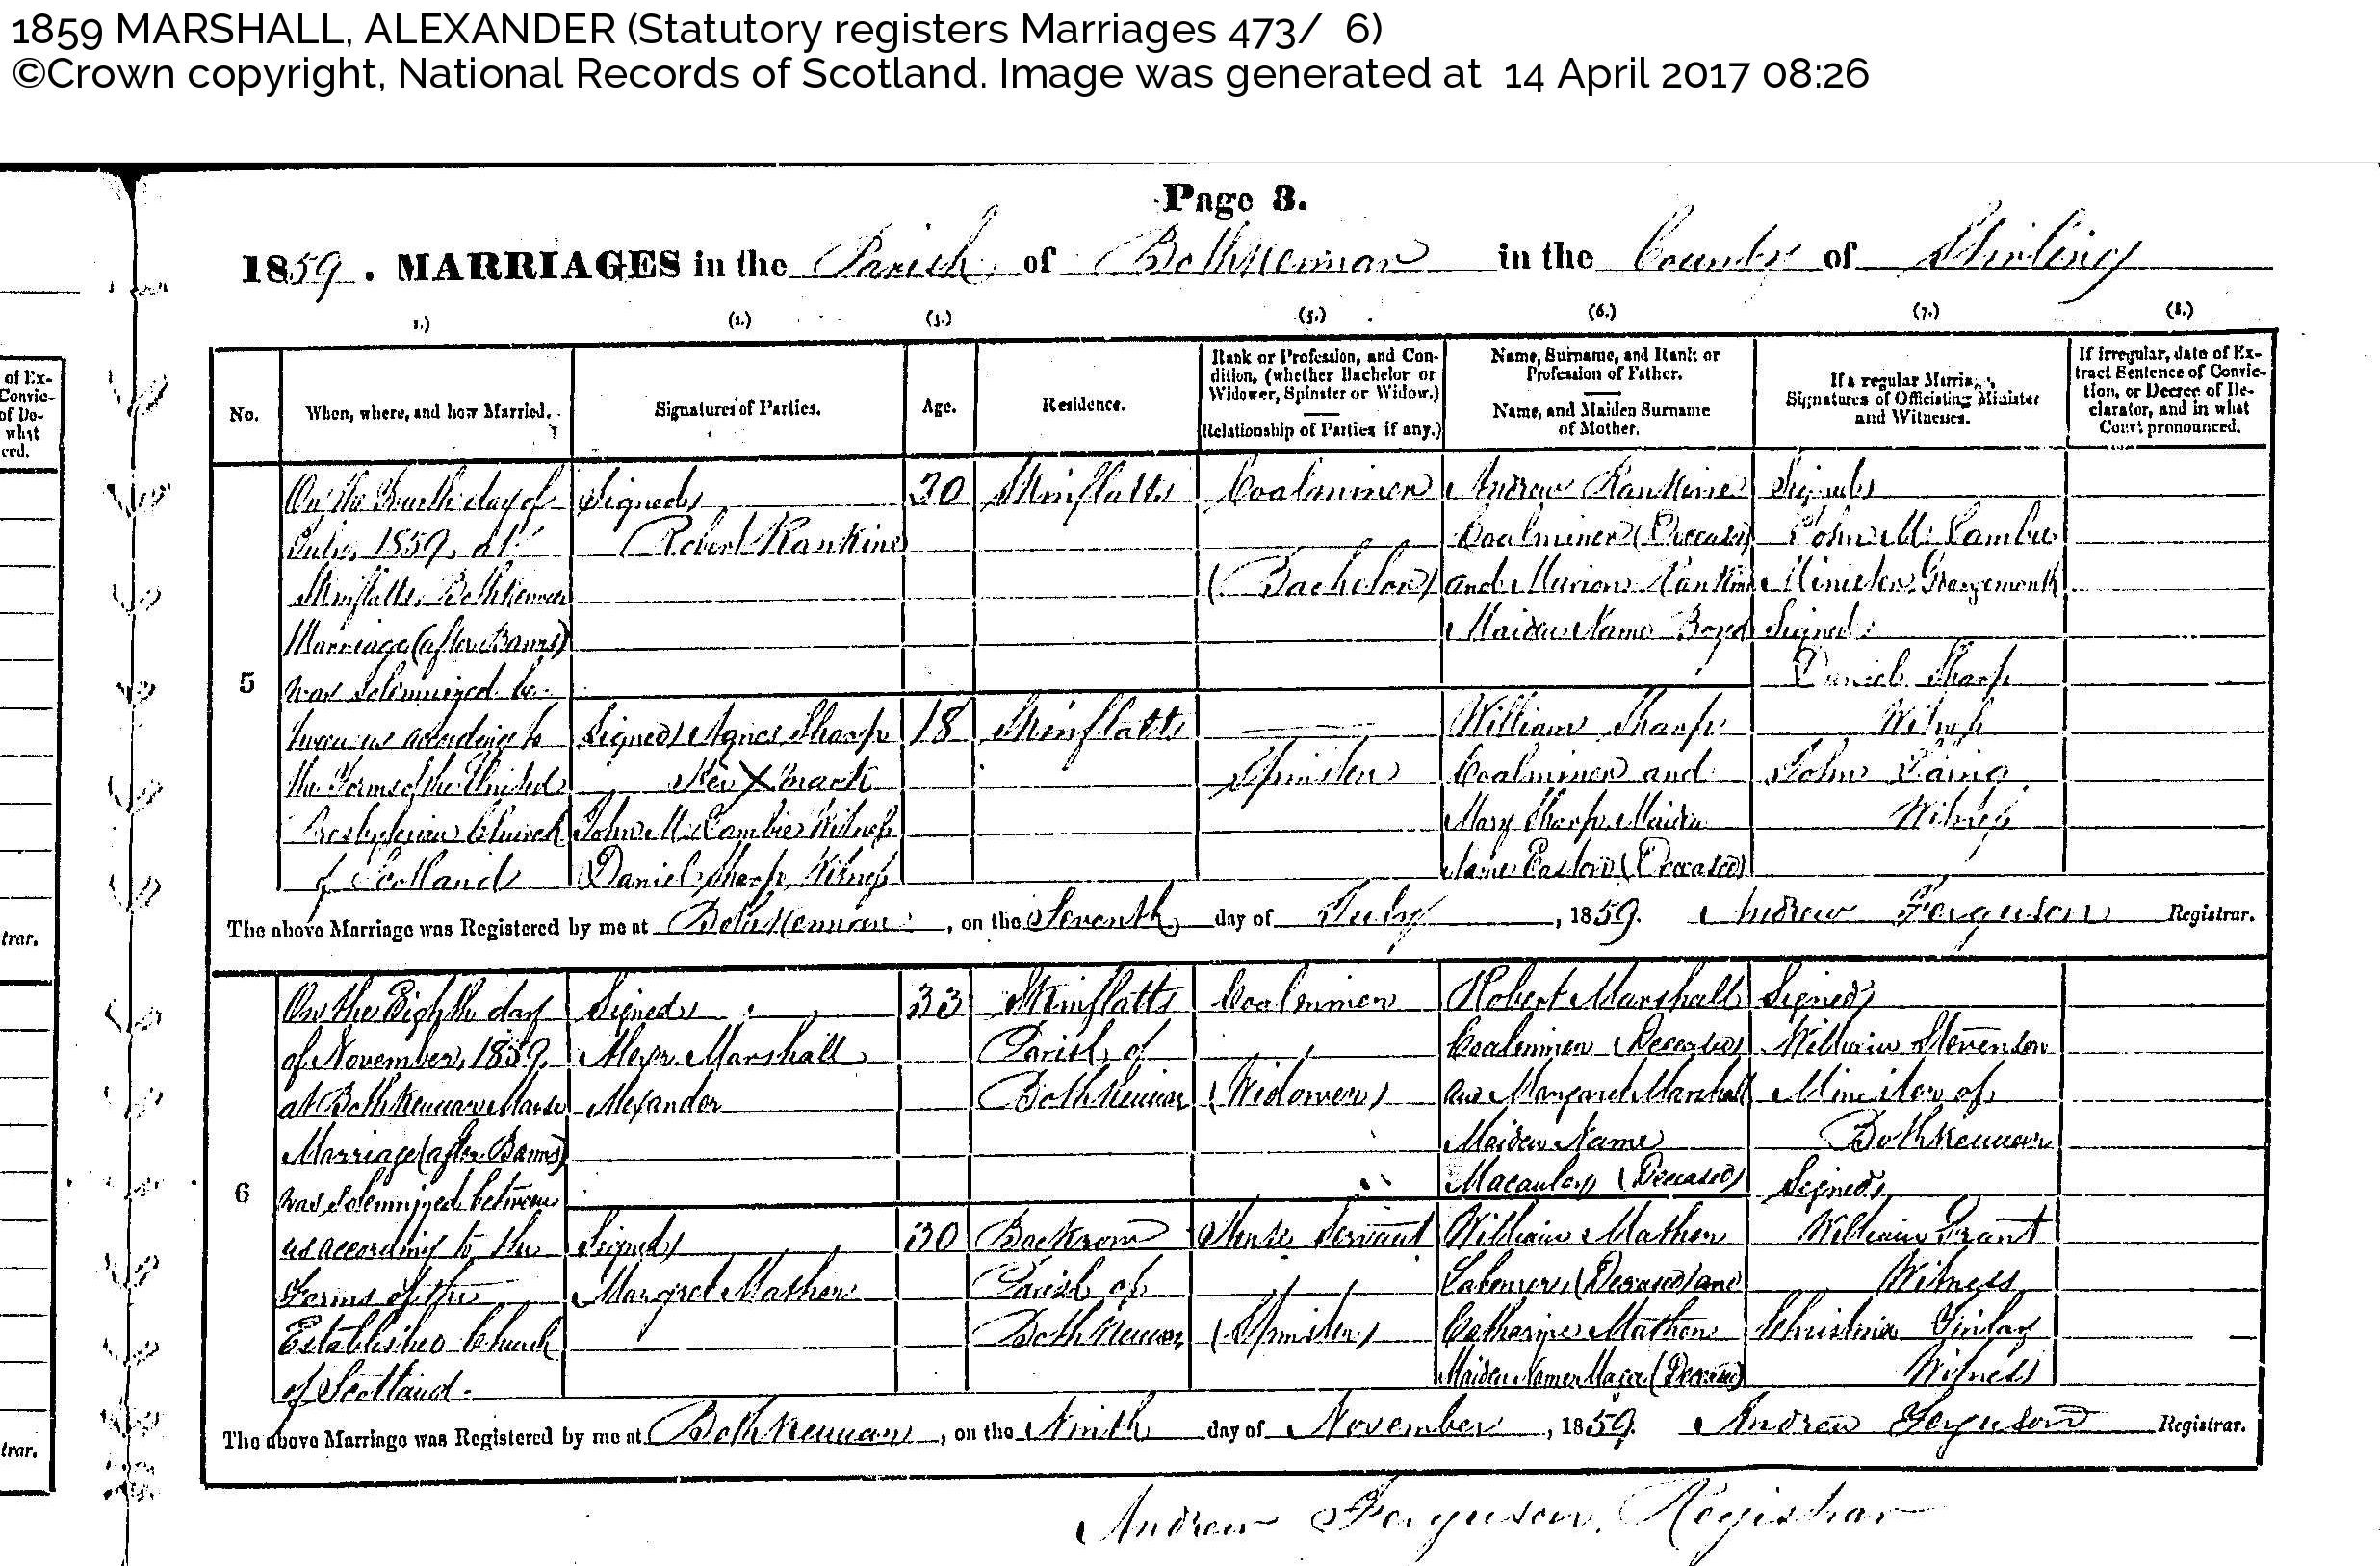 1859 MARSHALL, ALEXANDER (Statutory registers Marriages 473/ 6)
©Crown copyright, National Records of Scotland. Image was generated at 14 April 2017 08:26
Page 3.
1859. MARRIAGES in the Parish of Bothkennar in the County of Stirling
1.) (2.) (3.) (5.) (6.) (7.) (8.)
No.
When, where, and how Married.
Signatures of Parties.
Age.
Residence.
Rank or Profession, and Con-
dition, (whether Bachelor or
Widower, Spinster or Widow.)
Relationship of Parties if any.)
Name, Surname, and Rank or
Profession of Father.
Name, and Maiden Surname
of Mother.
If a regular Marriage,
Signatures of Officiating Minister
and Witnesses.
If irregular, date of Ex-
tract Sentence of Convic-
tion, or Decree of De-
clarator, and in what
Court pronounced.
of Ex-
Convic-
of De-
what
ced.
5
On the Fourth day of
July, 1859, at
Skinflatts, Bothkennar
Marriage (after Banns)
was solemnized be-
tween us according to
the Forms of the United
Presbyterian Church
of Scotland
Signed
Robert Rankine
30
Skinflatts
Coalminer
(Bachelor)
Andrew Rankine
Coalminer (Deceased)
and Marion Rankine
Maiden Name Boyed
Signed
John Mc Cambie
Minister Grangemouth
Signed
Daniel Sharp
Witness
John Laing
Witness
Signed Agnes Sharp
Her X Mark
John Mc Cambie Witness
Daniel Sharp Witness
18
Skinflatts
Spinster
William Sharp
Coalminer and
Mary Sharp Maiden
Name (Deceased)
The above Marriage was Registered by me at Bothkennar, on the Seventh day of July, 1859. Andrew Ferguson Registrar.
trar.
6
On the Eighth day
of November, 1859,
at Bothkennar Manse
Marriage (after Banns)
was solemnized between
us according to the
Forms of the
Established Church
of Scotland.
Signed
Alexr. Marshall
Alexander
33
Skinflatts
Parish of
Bothkennar
Coalminer
(Widower)
Robert Marshall
Coalminer (Deceased)
and Margaret Marshall
Maiden Name
Macaulay (Deceased)
Signed
William Stevenson
Minister of
Bothkennar
Signed
William Grant
Witness
Christina Finlay
Witness
Signed
Margret Mather
30
Backrow
Parish of
Bothkennar
House Servant
(Spinster)
William Mather
Labourer (Deceased) and
Catharine Mather
Maiden Name (Deceased)
The above Marriage was Registered by me at Bothkennar, on the Ninth day of November, 1859. Andrew Ferguson Registrar.
trar.
Andrew Ferguson, Registrar